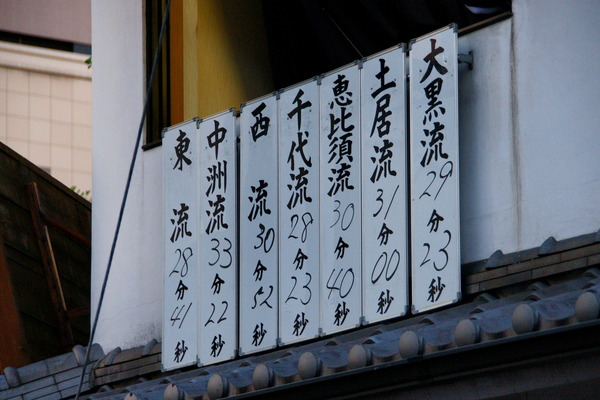 大黒流29分23秒
土居流31分00秒
恵比須流30分40秒
千代流28分23秒
西流30分52秒
中洲流33分22秒
東流28分41秒